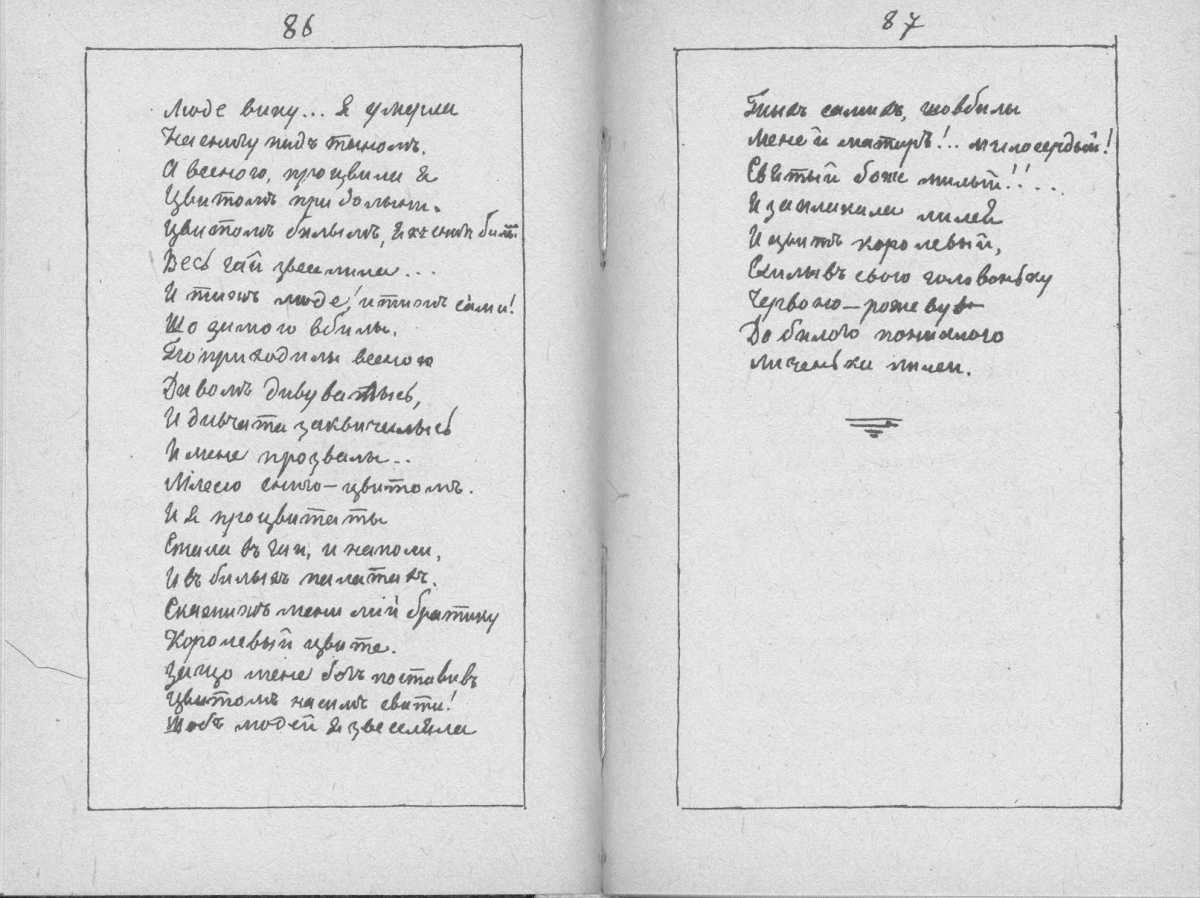 86
Люде вину... Я умерла
На снигу пидъ тыномъ.
А весною, процвила я
Цвитомъ при долыни.
Цвитомъ билымъ, якъ снигъ билымъ
Весь гай звеселила...
И тижъ люде! и тижъ сами!
Що зимою вбилы.
Поприходилы весною
Дивомъ дивуватысь,
И дивчата заквичилысь
И мене прозвалы..
Млеею снигo-цвитомъ.
И я процвитаты
Стала въ гаи, и на поли,
И въ билыхъ палатахъ.
Скажижъ мени мій братику
Королевый цвите.
За що мене богъ поставивъ
Цвитомъ на симъ свити!
Щобъ людей я звеселяла
87
Тыхъ самихъ, що вбилы
Мене й матирь!.. милосердый!
Святый боже милый!!...
И заплакала лилея
И цвитъ королевый,
Схилывъ свою головоньку
Червоно-рожеву
До билого пониклого
Личенька лилеи.